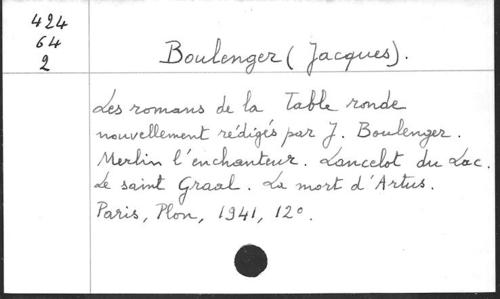 424
64
2
Boulenger (Jacques).
Les romans de la Table ronde
nouvellement rédigés par J. Boulenger.
Merlin l'enchanteur. Lancelot du Lac.
Le saint Graal. La mort d'Artus.
Paris, Plon, 1941, 12°.